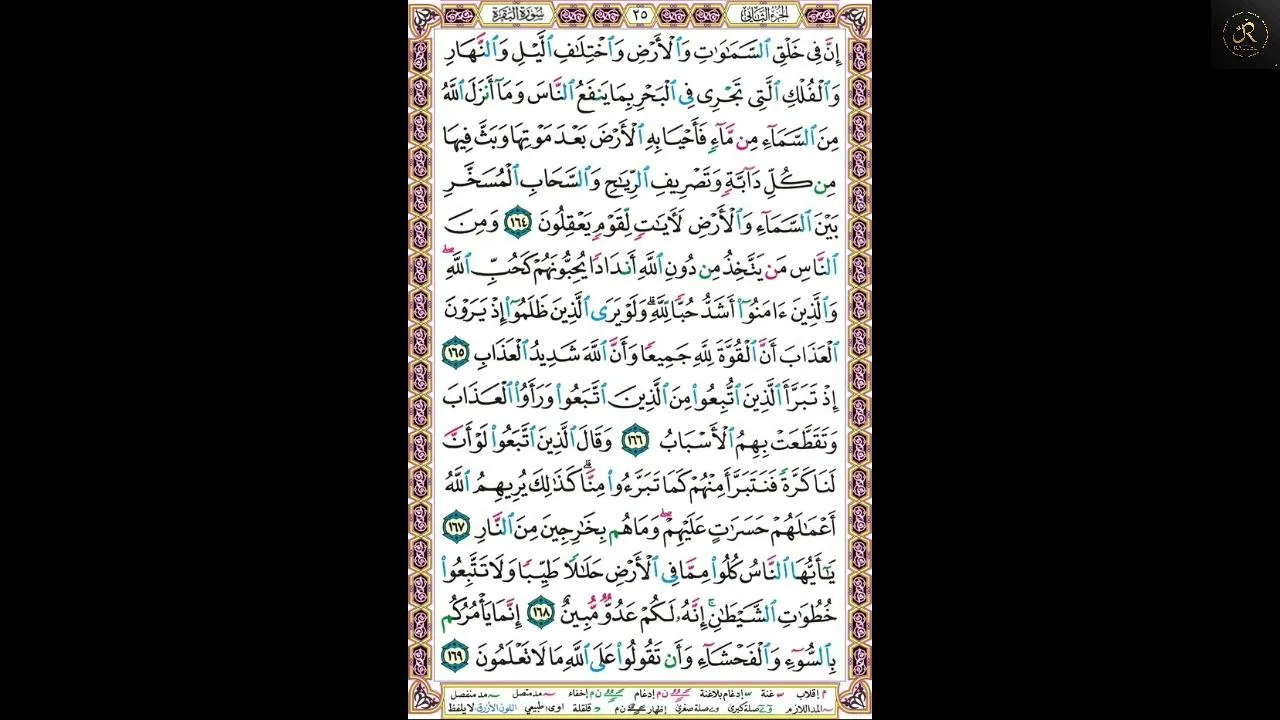 الجزء الثاني
٢٥
سورة البقرة
إِنَّ فِي خَلْقِ ٱلسَّمَٰوَٰتِ وَٱلْأَرْضِ وَٱخْتِلَٰفِ ٱلَّيْلِ وَٱلنَّهَارِ
وَٱلْفُلْكِ ٱلَّتِي تَجْرِى فِى ٱلْبَحْرِ بِمَا يَنفَعُ ٱلنَّاسَ وَمَآ أَنزَلَ ٱللَّهُ
مِنَ ٱلسَّمَآءِ مِن مَّآءٍ فَأَحْيَا بِهِ ٱلْأَرْضَ بَعْدَ مَوْتِهَا وَبَثَّ فِيهَا
مِن كُلِّ دَآبَّةٍ وَتَصْرِيفِ ٱلرِّيَٰحِ وَٱلسَّحَابِ ٱلْمُسَخَّرِ
بَيْنَ ٱلسَّمَآءِ وَٱلْأَرْضِ لَأَيَٰتٍ لِّقَوْمٍ يَعْقِلُونَ ١٦٤ وَمِنَ
ٱلنَّاسِ مَن يَتَّخِذُ مِن دُونِ ٱللَّهِ أَندَادًا يُحِبُّونَهُمْ كَحُبِّ ٱللَّهِۖ
وَٱلَّذِينَ ءَامَنُوٓا۟ أَشَدُّ حُبًّا لِّلَّهِۗ وَلَوْ يَرَى ٱلَّذِينَ ظَلَمُوٓا۟ إِذْ يَرَوْنَ
ٱلْعَذَابَ أَنَّ ٱلْقُوَّةَ لِلَّهِ جَمِيعًا وَأَنَّ ٱللَّهَ شَدِيدُ ٱلْعَذَابِ ١٦٥
إِذْ تَبَرَّأَ ٱلَّذِينَ ٱتُّبِعُوا۟ مِنَ ٱلَّذِينَ ٱتَّبَعُوا۟ وَرَأَوُا۟ ٱلْعَذَابَ
وَتَقَطَّعَتْ بِهِمُ ٱلْأَسْبَابُ ١٦٦ وَقَالَ ٱلَّذِينَ ٱتَّبَعُوا۟ لَوْ أَنَّ
لَنَا كَرَّةً فَنَتَبَرَّأَ مِنْهُمْ كَمَا تَبَرَّءُوا۟ مِنَّاۗ كَذَٰلِكَ يُرِيهِمُ ٱللَّهُ
أَعْمَٰلَهُمْ حَسَرَٰتٍ عَلَيْهِمْۖ وَمَا هُم بِخَٰرِجِينَ مِنَ ٱلنَّارِ ١٦٧
يَٰٓأَيُّهَا ٱلنَّاسُ كُلُوا۟ مِمَّا فِى ٱلْأَرْضِ حَلَٰلًا طَيِّبًا وَلَا تَتَّبِعُوا۟
خُطُوَٰتِ ٱلشَّيْطَٰنِۚ إِنَّهُۥ لَكُمْ عَدُوٌّ مُّبِينٌ ١٦٨ إِنَّمَا يَأْمُرُكُم
بِٱلسُّوٓءِ وَٱلْفَحْشَآءِ وَأَن تَقُولُوا۟ عَلَى ٱللَّهِ مَا لَا تَعْلَمُونَ ١٦٩
م إقلاب غنة إدغام بلاغنة ن م إدغام ن م إخفاء مد متصل مد منفصل
المد اللازم صلة كبرى صلة صغرى إظهار ن م قلقلة اوى طبيعي اللون الأزرق لا يلفظ